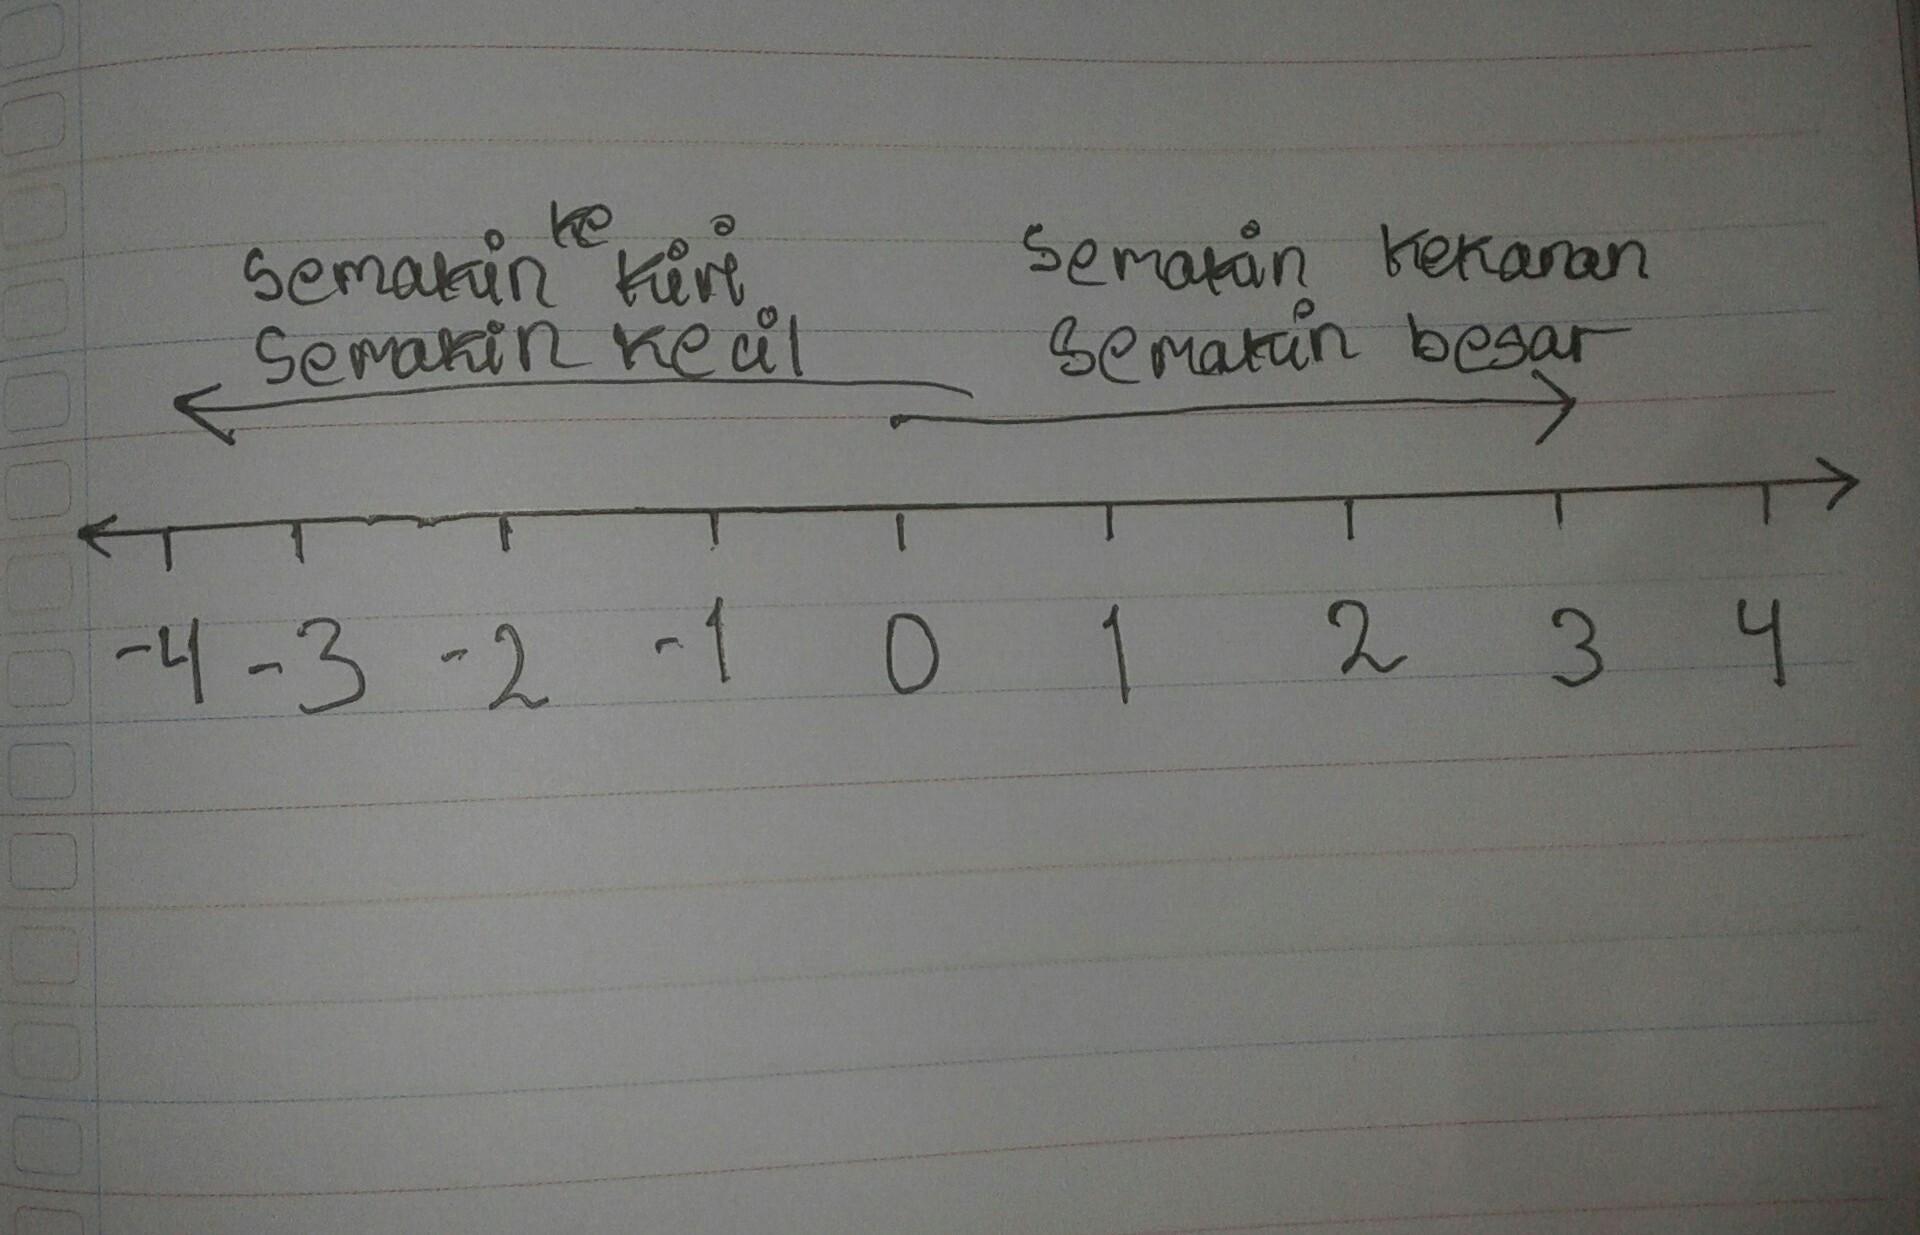 Semakin ke kiri
Semakin kecil
Semakin kekanan
Semakin besar
-4 -3 -2 -1 0 1 2 3 4